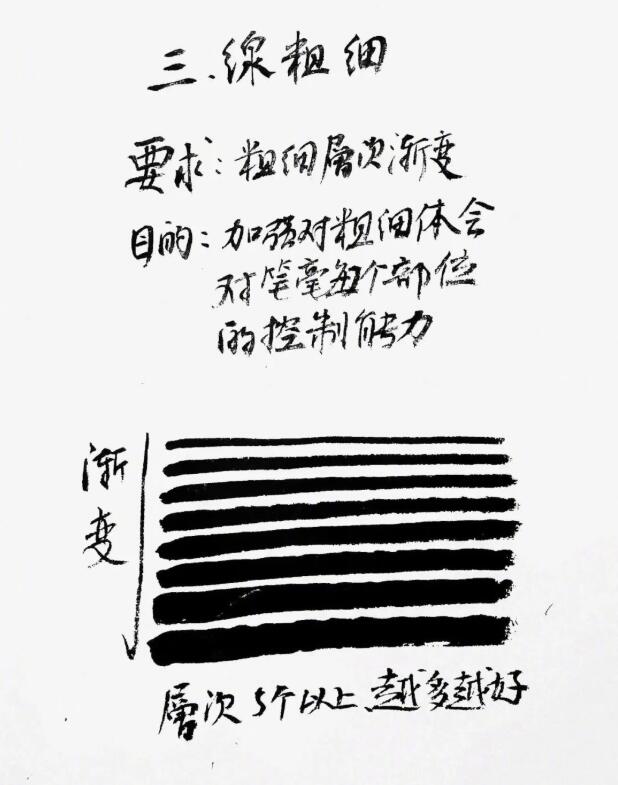 三、线粗细
要求：粗细層次渐变
目的：加强对粗细体会
对笔毫每个部位
的控制能力
渐变
層次5个以上越多越好